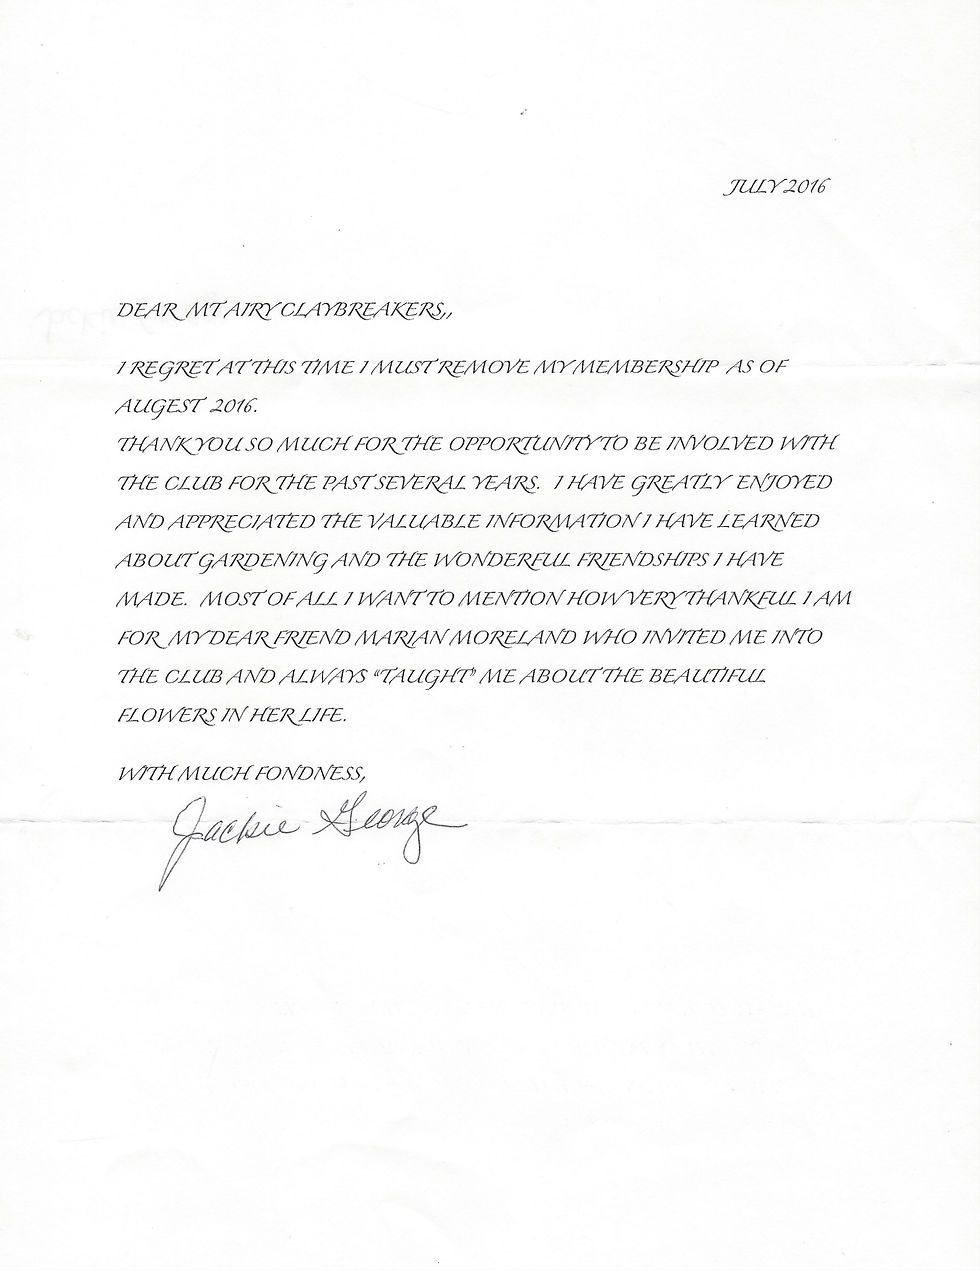 JULY 2016
DEAR MT AIRY CLAYBREAKERS,,
I REGRET AT THIS TIME I MUST REMOVE MY MEMBERSHIP AS OF
AUGEST 2016.
THANK YOU SO MUCH FOR THE OPPORTUNITY TO BE INVOLVED WITH
THE CLUB FOR THE PAST SEVERAL YEARS. I HAVE GREATLY ENJOYED
AND APPRECIATED THE VALUABLE INFORMATION I HAVE LEARNED
ABOUT GARDENING AND THE WONDERFUL FRIENDSHIPS I HAVE
MADE. MOST OF ALL I WANT TO MENTION HOW VERY THANKFUL I AM
FOR MY DEAR FRIEND MARIAN MORELAND WHO INVITED ME INTO
THE CLUB AND ALWAYS “TAUGHT” ME ABOUT THE BEAUTIFUL
FLOWERS IN HER LIFE.
WITH MUCH FONDNESS,
Jackie George